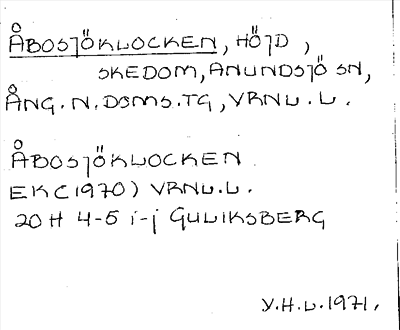 ÅBOSJÖKLOCKEN, HÖJD,
SKEDOM, ANUNDSJÖ SN,
ÅNG. N. DOMS. TG, VRNL. L.
ÅBOSJÖKLOCKEN
EK (1970) VRNL. L.
20 H 4-5 i-j GULIKSBERG
Y.H.L. 1971.